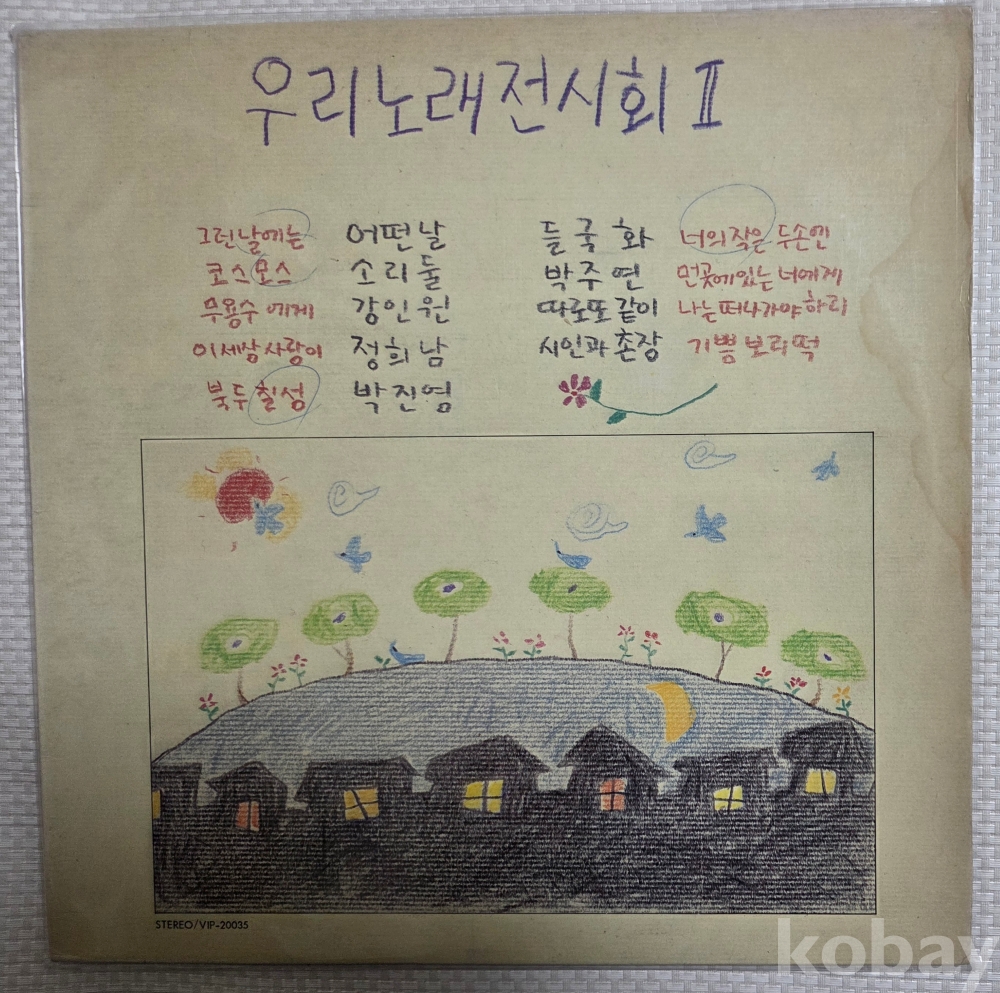 우리노래전시회 II
그런날에는 어떤날
코스모스 소리둘
무용수에게 강인원
이세상사랑이 정희남
북두칠성 박진영
들국화 너의작은 두손엔
박주연 먼곳에있는 너에게
따로또같이 나는떠나가야하리
시인과 촌장 기쁨보리떡
STEREO/VIP-20035
kobay